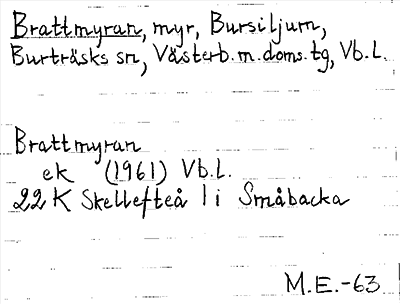 Brattmyran, myr, Bursiljum,
Burträsks sn, Västerb.m.doms.tg, Vb.L.
Brattmyran
ek (1961) Vb.L.
22 K Skellefteå 1 i Småbacka
M.E.-63